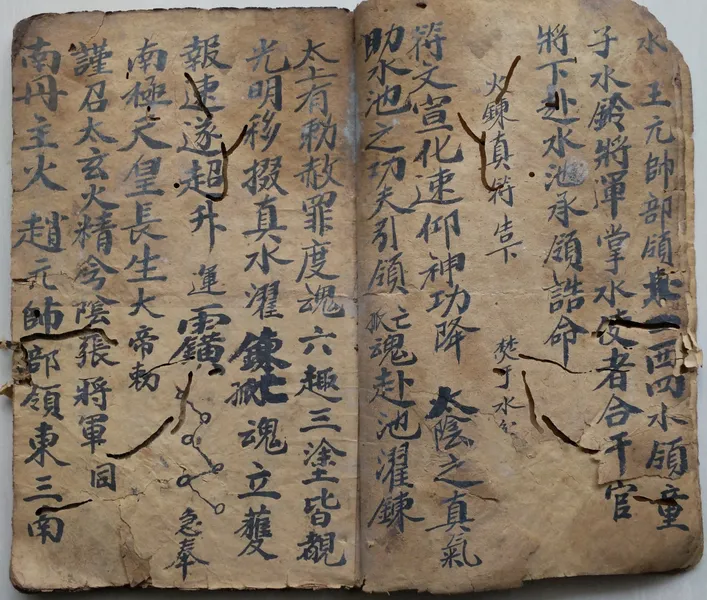 水 王元帥部領北一西四水領童
子水鈴將渾掌水使者合干官
將下赴水池承領誥命
火鍊真符告下 焚于水
符文宣化速仰神功降 太陰之真氣
助水池之功夫引領亡孤魂赴池濯鍊
太上有勅赦罪度魂六趣三塗皆覩
光明移掇真水濯鍊亡孤魂立蒦
報速遂超升 運 急奉
南極天皇長生大帝勅
謹召太玄火精兮陰張將軍同
南丹主火 趙元帥部領東三南